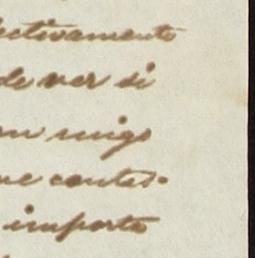 ectivamente
de ver si
migo
ve contes-
importe